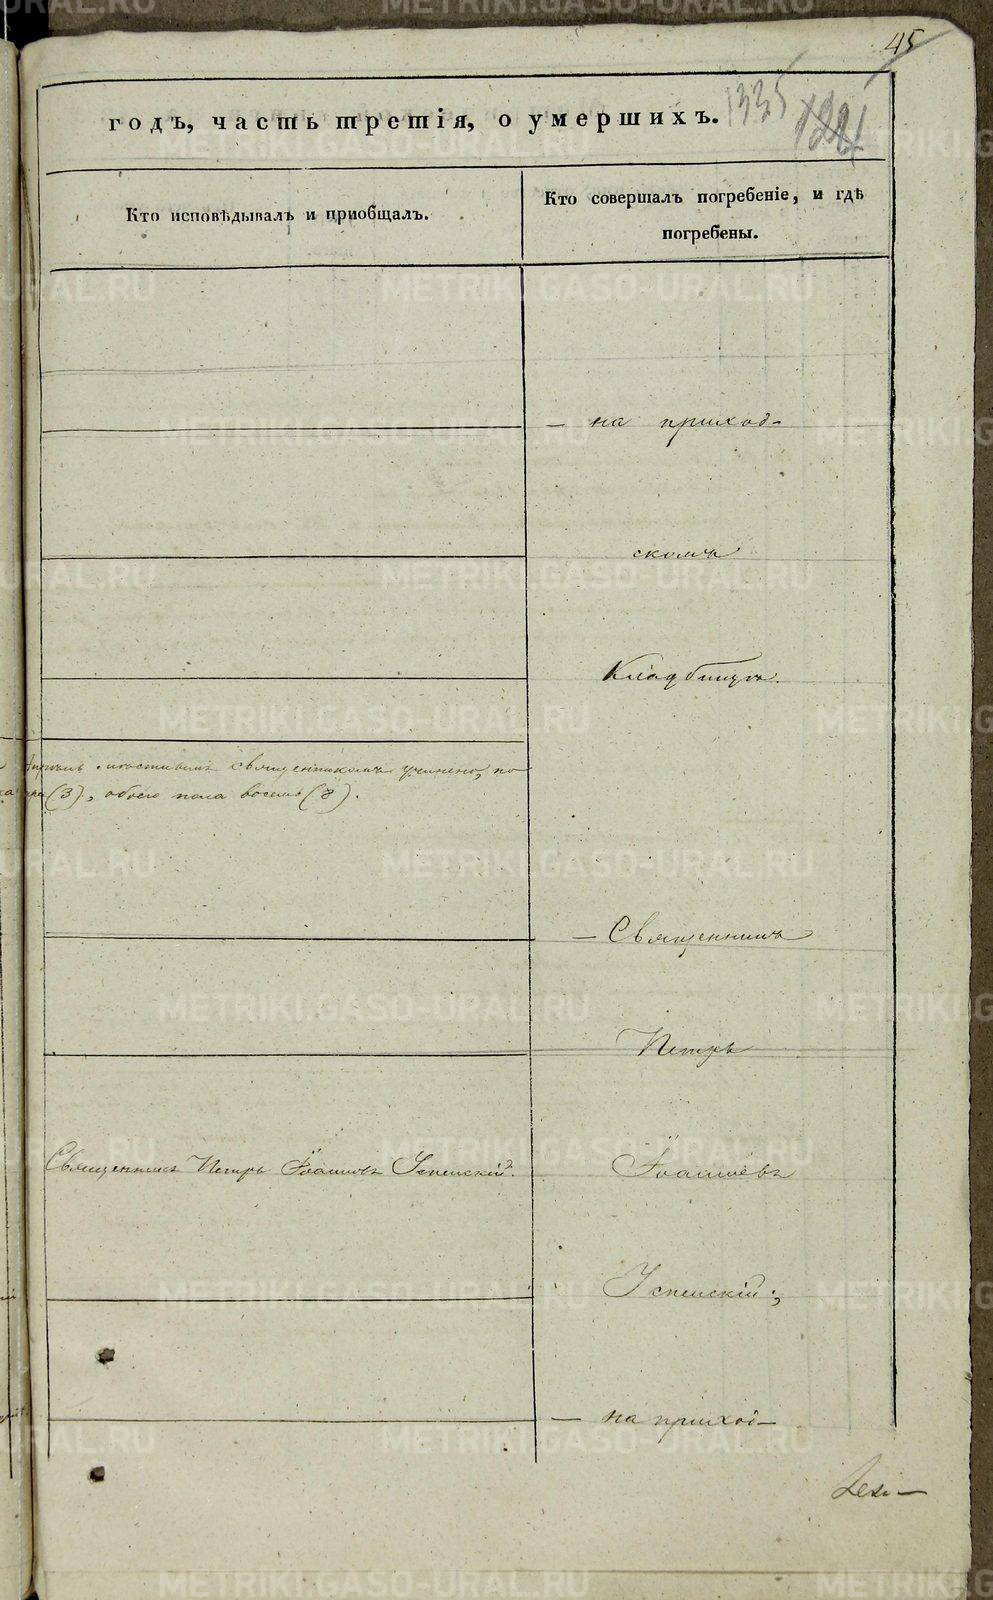 45
годъ, часть третія, о умершихъ.
1335
Кто исповѣдывалъ и пріобщалъ.
Кто совершалъ погребеніе, и гдѣ
погребены.
— на приход-
скомъ
Кладбищѣ.
священникомъ учинено, по
(3), обоего пола восемь (8).
— Священникъ
Петръ
Іоанновъ
Священникъ Петръ Іоанновъ Успенскій.
Успенскій;
— на приход-
METRIKI.GASO-URAL.RU